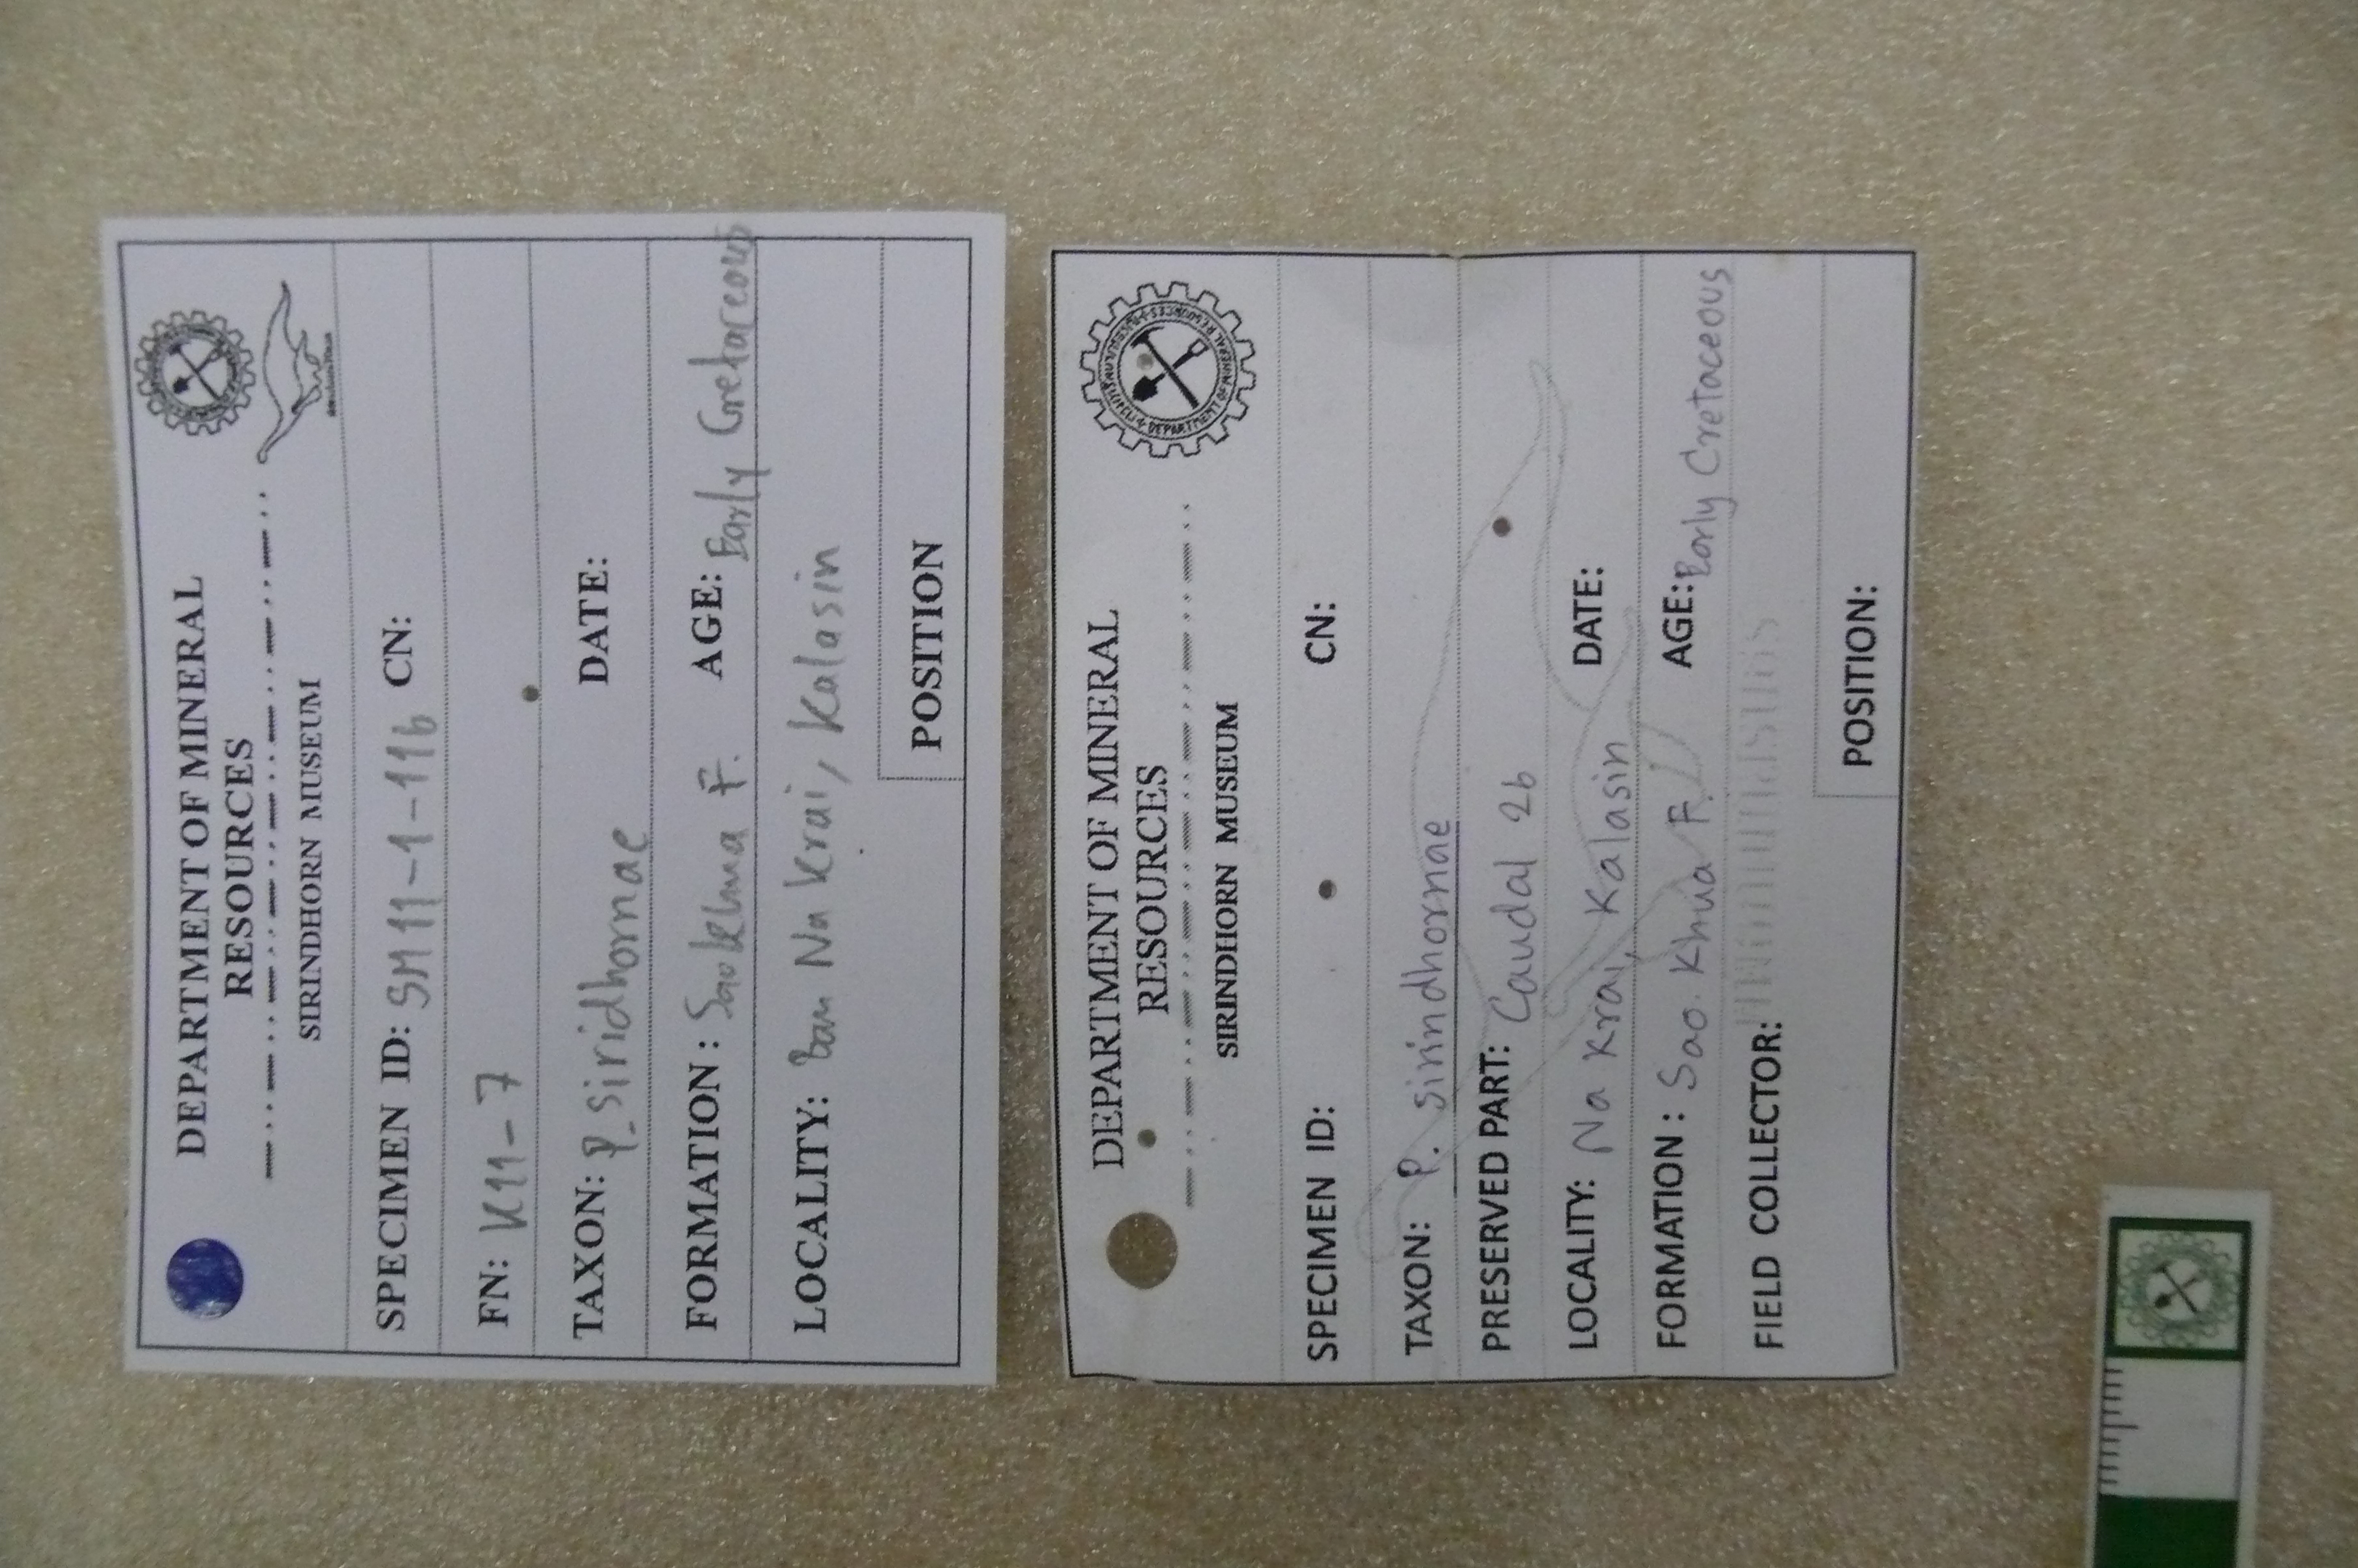 DEPARTMENT OF MINERAL
RESOURCES
SIRINDHORN MUSEUM
SPECIMEN ID: SM11-1-116 CN:
FN: K11-7
TAXON: P. siridhornae DATE:
FORMATION: Saokhua F. AGE: Early Cretaceous
LOCALITY: Ban Na Krai, Kalasin
POSITION
DEPARTMENT OF MINERAL
RESOURCES
SIRINDHORN MUSEUM
SPECIMEN ID: CN:
TAXON: P. sirindhornae
PRESERVED PART: Caudal 26
LOCALITY: Na Krai, Kalasin DATE:
FORMATION: Sao Khua F. AGE: Early Cretaceous
FIELD COLLECTOR:
POSITION:
DEPARTMENT OF MINERAL RESOURCES